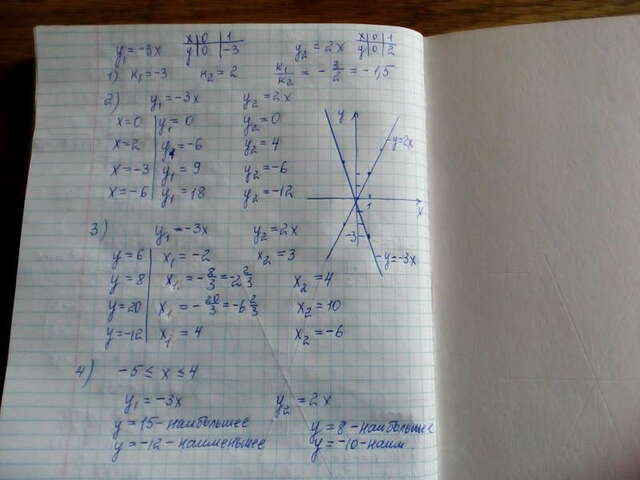 y₁=-3x x|0|1 y₂=2x x|0|1
y|0|-3 y|0|2
1) k₁=-3 k₂=2 k₁/k₂ = -3/2 = -1,5
2) y₁=-3x y₂=2x
x=0 | y₁=0 y₂=0
x=2 | y₁=-6 y₂=4
x=-3 | y₁=9 y₂=-6
x=-6 | y₁=18 y₂=-12
y
y=2x
1
x
-3
y=-3x
3) y₁=-3x y₂=2x
y=6 | x₁=-2 x₂=3
y=8 | x₁=-8/3=-2 2/3 x₂=4
y=20 | x₁=-20/3=-6 2/3 x₂=10
y=-12 | x₁=4 x₂=-6
4) -5≤x≤4
y₁=-3x y₂=2x
y=15-наибольшее y=8-наибольшее
y=-12-наименьшее y=-10-наим.